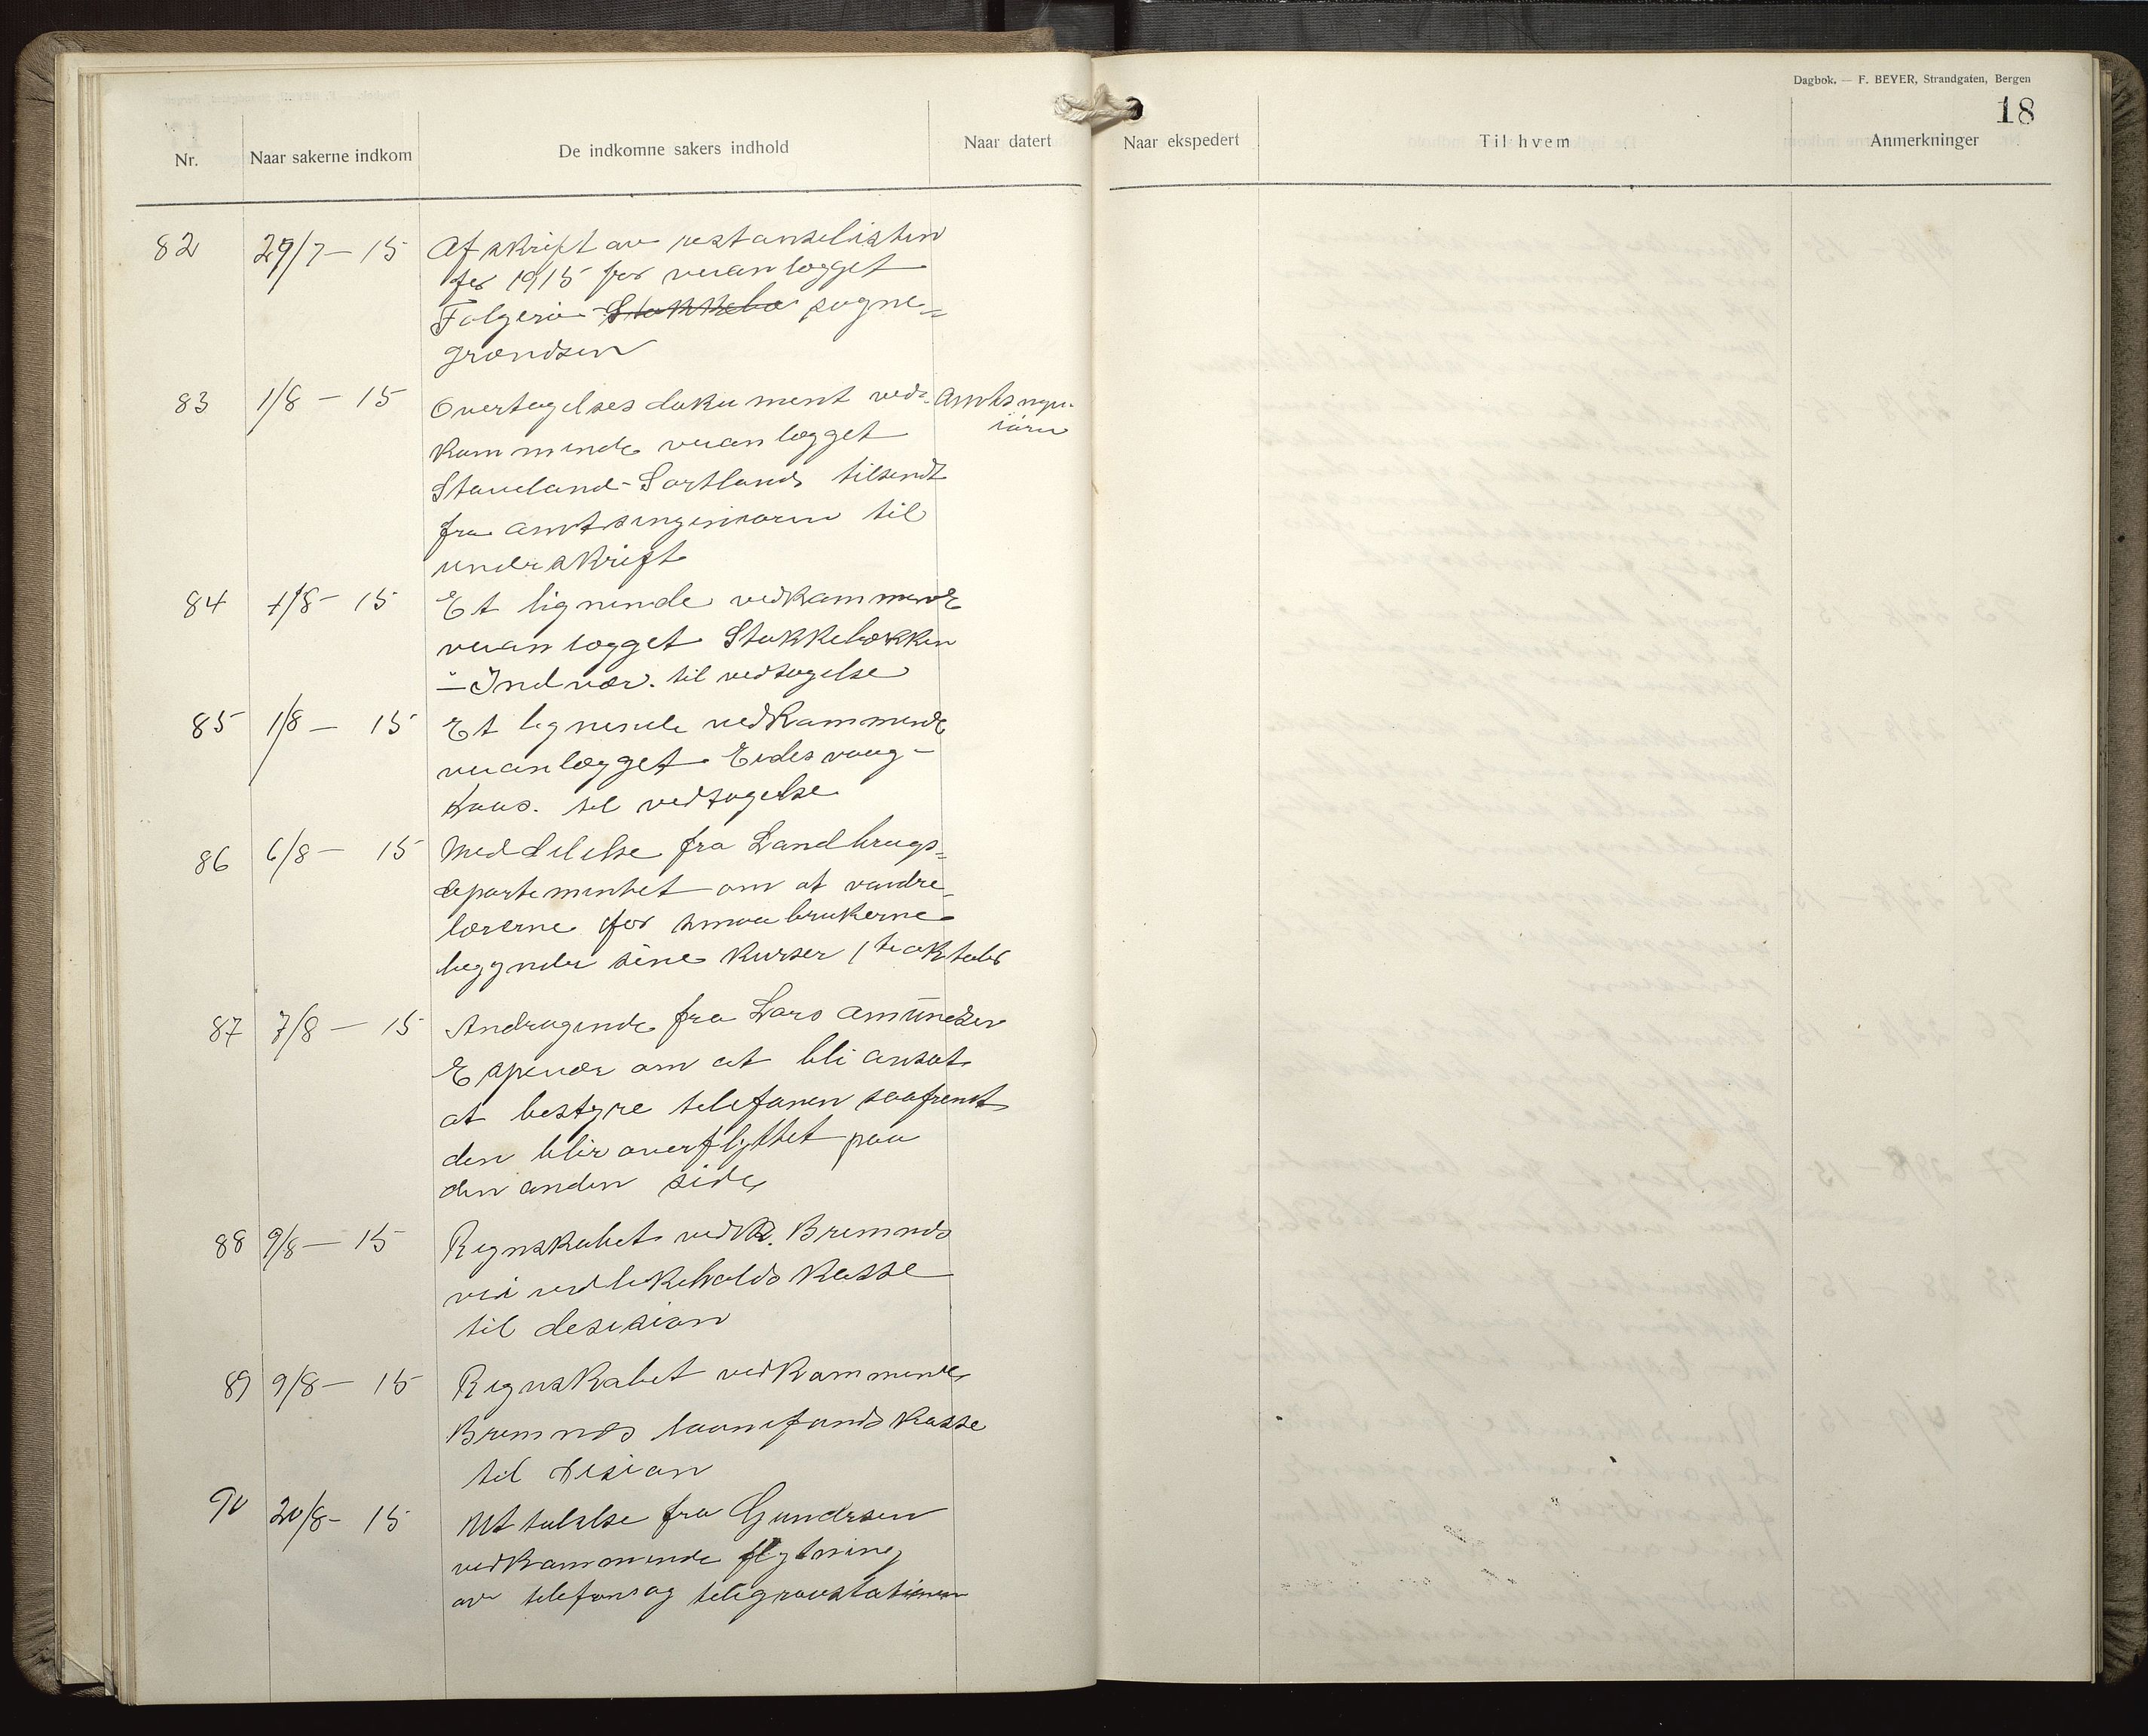 Dagbok. — F. BEYER, Strandgaten, Bergen
18
Nr. Naar sakerne indkom De indkomne sakers indhold Naar datert Naar ekspedert Til hvem Anmerkninger
82 29/7 - 15 Afskrift av restanselisten
for 1915 for veianlægget
Folgerø Stokkebø sogne-
grændsen
83 1/8 - 15 Overtagelses dokument ved- Amtsingen-
kommende veianlægget iøren
Staveland-Sortland tilsendt
fra amtsingeniøren til
underskrift
84 1/8 - 15 Et lignende vedkommende
veianlægget Stokkebækken
- Indvær. til vedtagelse
85 1/8 - 15 Et lignende vedkommende
veianlægget Eidesvaag-
Kaas. til vedtagelse
86 6/8 - 15 Meddelelse fra Landbrugs-
departementet om at vandre-
lærerne for smaabrukerne
begynder sine kurser 1ste oktober
87 7/8 - 15 Andragende fra Lars Amundsen
Espevær om at bli ansat
at bestyre telefonen saafremt
den blir overflyttet paa
den anden side
88 9/8 - 15 Regnskabet vedk. Bremnes
vei vedlikeholds kasse
til desision
89 9/8 - 15 Regnskabet vedkommende
Bremnes laanefonds kasse
til desision
90 20/8 - 15 Uttalelse fra Gundersen
vedkommende flytning
av telefon og telegrafstationen